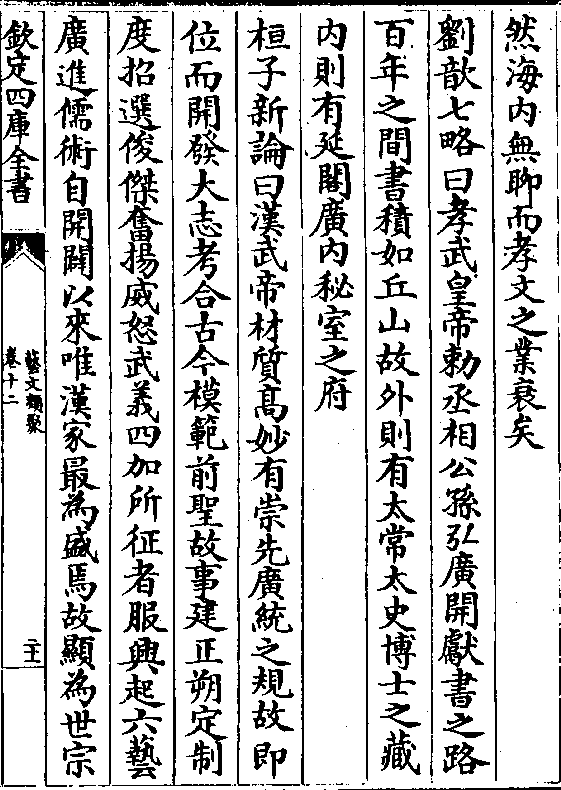 然海内無聊而孝文之業衰矣
劉歆七略曰孝武皇帝勅丞相公孫弘廣開獻書之路
百年之間書積如丘山故外則有太常太史博士之藏
内則有延閣廣内秘室之府
桓子新論曰漢武帝材質髙妙有崇先廣統之規故即
位而開發大志考合古今模範前聖故事建正朔定制
度招選俊傑奮揚威怒武義四加所征者服興起六藝
廣進儒術自開闢以來唯漢家最為盛焉故顯為世宗
欽定四庫全書
藝文類聚
卷十二
二十二